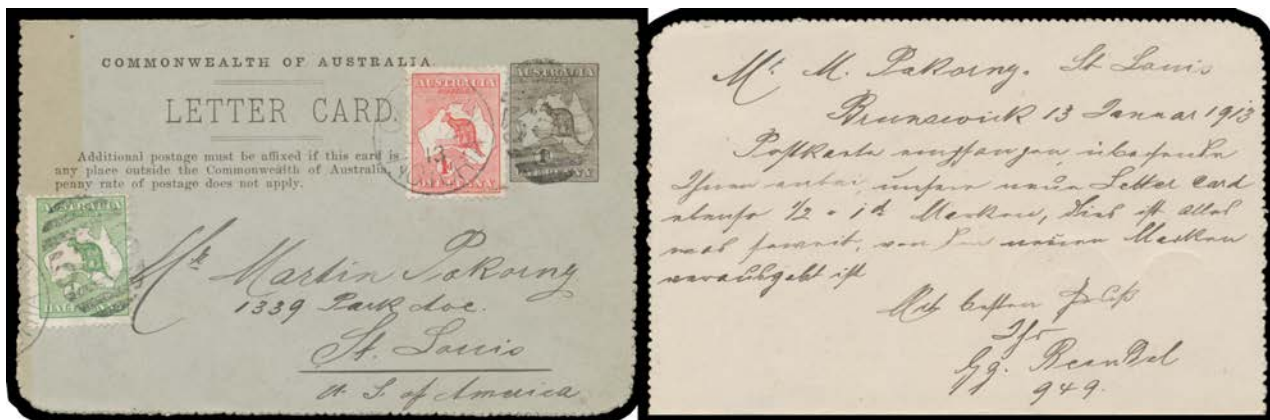 COMMONWEALTH OF AUSTRALIA.
LETTER CARD.
Additional postage must be affixed if this card is
any place outside the Commonwealth of Australia,
penny rate of postage does not apply.
AUSTRALIA
AUSTRALIA
AUSTRALIA
Mr Martin Pokorny
1339 Park Ave.
St. Louis
U. S. of America
Mr. M. Pokorny. St Louis
Brunswick 13 Januar 1913
Postkarte empfangen, übersende
Ihnen anbei unsere neue Letter card
ebenso 1/2 & 1d Marken, dies ist alles
was soweit, von den neuen Marken
verausgabt ist
Mit besten Gruß
Ihr
Gg.
949.